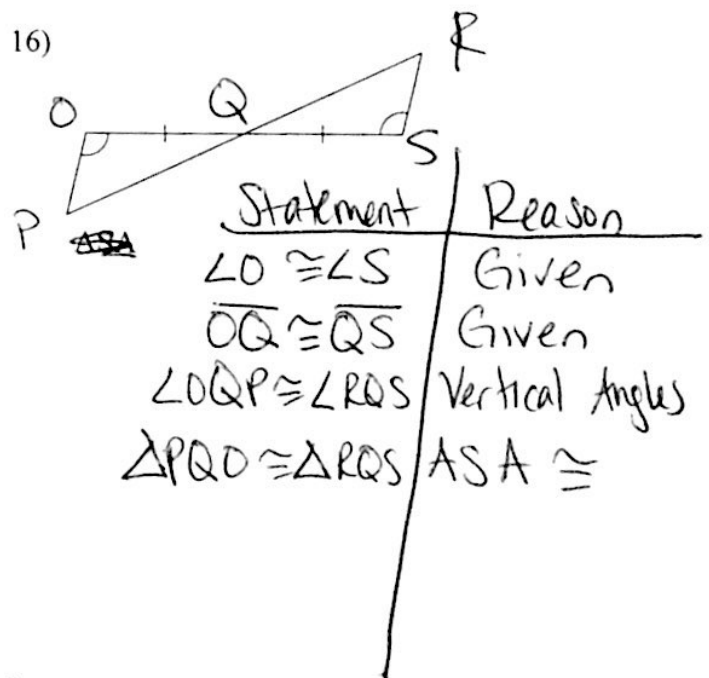 16)
R
O
Q
S
P
ASA
Statement Reason
∠O ≅ ∠S Given
OQ ≅ QS Given
∠OQP ≅ ∠RQS Vertical Angles
△PQO ≅ △RQS ASA ≅